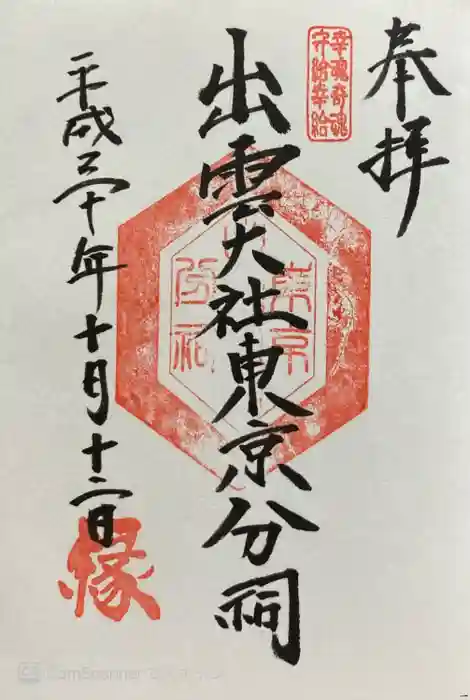 奉拝
幸魂奇魂
守給幸給
出雲大社東京分祠
東京
分祠
平成三十年十月十二日
縁
CamScanner